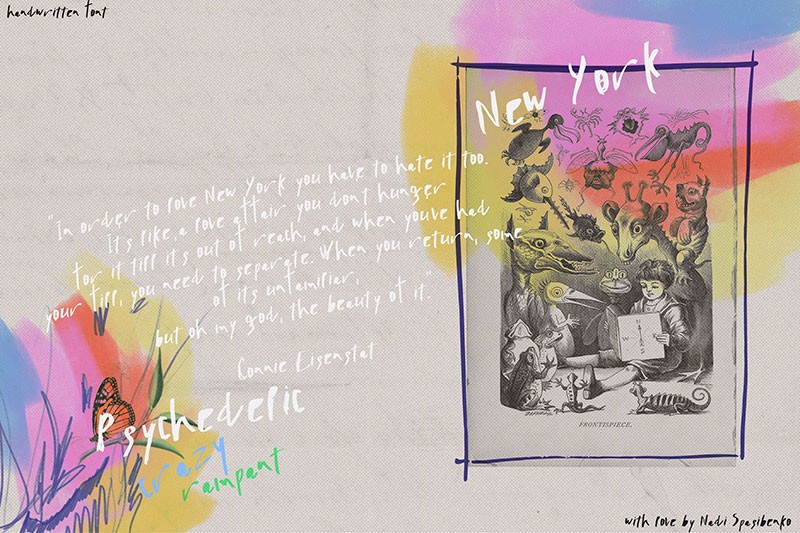 handwritten font
New York
"In order to love New York you have to hate it too.
It's like a love affair you don't hunger
for it till it's out of reach, and when you've had
your fill, you need to separate. When you return, some
of its unfamiliar,
but oh my god, the beauty of it."
Connie Eisenstat
Psychedelic
crazy
rampant
W
FRONTISPIECE.
with love by Nadi Spasibenko